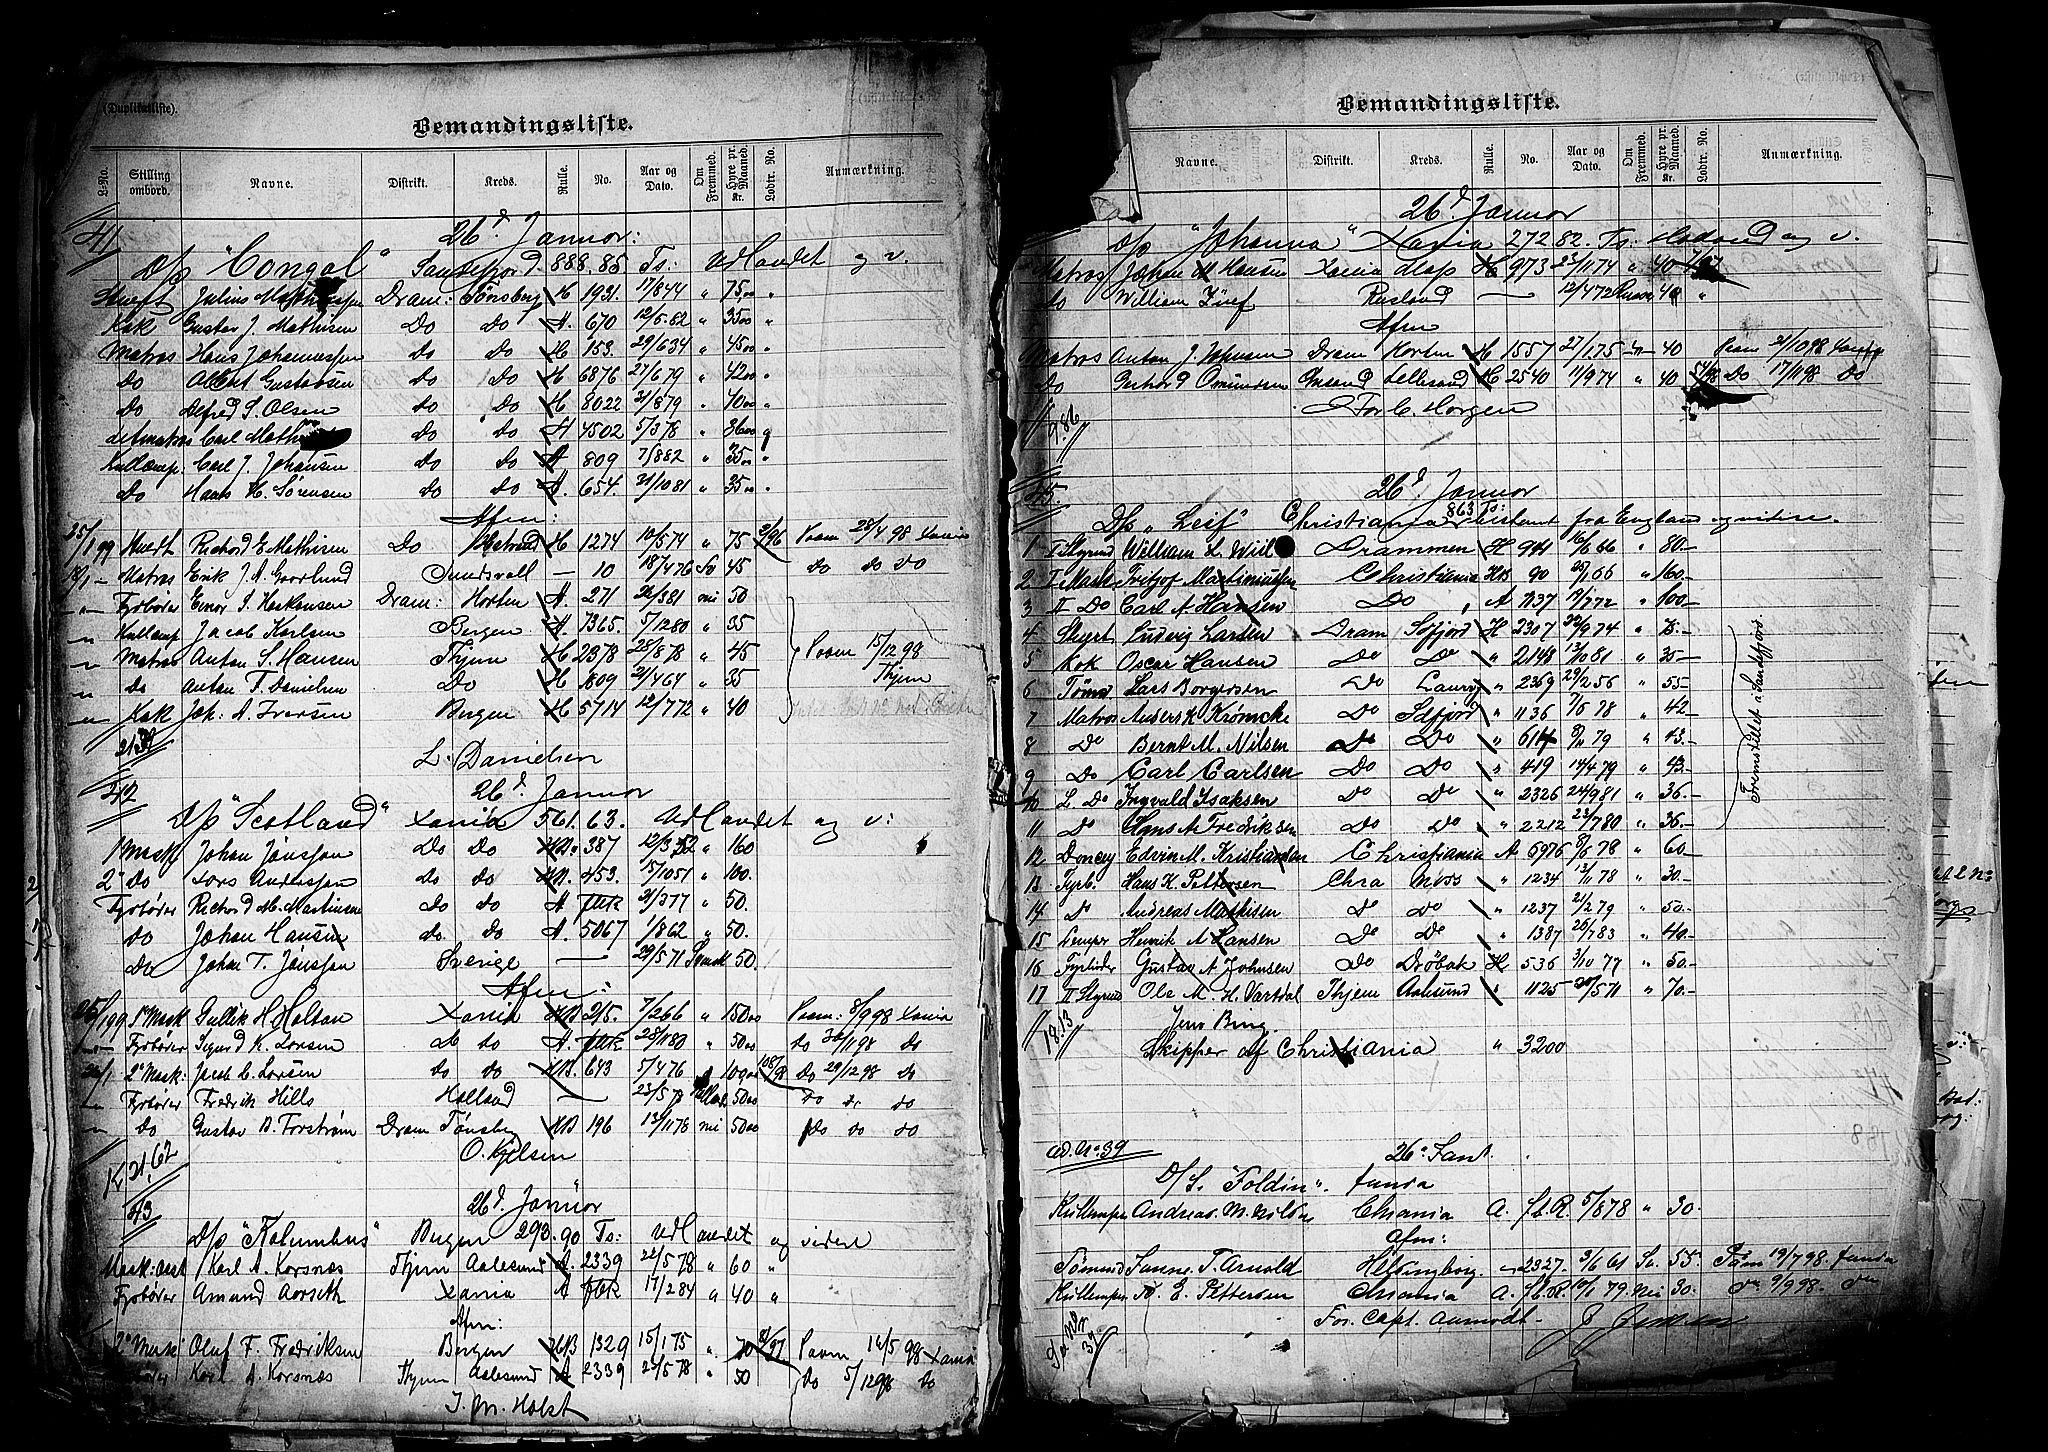 (Duplikatliste).
Bemandingsliste.
L-No. Stilling ombord. Navne. Distrikt. Kreds. Rulle. No. Aar og Dato. Om Fremmed. Hyre pr. Maaned. Kr. Lodtr. No. Anmærkning.
41 26d Januar:
D/s "Congal" Sandefjord 888.85 Ts: Udlandet og v.
Stuert Julius Dram: Tønsberg H 1931. 11/844 " 75,00 "
Kok Gustav J. Mathisen Do Do A. 670 12/582 " 3500 "
Matros Hans Johannessen Do Do H 153. 29/634 " 4500 "
Do Albert Gustavsen Do Do H 6876 27/679 " 4200 "
Do Alfred S. Olsen do Do H 8022 21/879 " 4000 "
Letmatros Carl do do H 4502 5/378 " 3600
Kullemp. Carl J. Johansen do Do A 809 7/882 " 3500 "
Do Hans H. Sørensen do do A. 654. 21/1081 " 3500 "
Afm:
25/1 99 Stuert Richard E. Mathisen Do Holmestrand H 1274 10/574 " 75 Paam 28/4 98 Xania
Matros Erik J. A. Sundsvall — 10 18/476 45 do do do
Fyrbøter Einar S. Haakonsen Dram: Horten A. 271 22/381 nei 50
Kullemp Jacob Karlsen Bergen A. 7365. 5/1280 " 35
Matros Anton S. Hansen Thjem H 2378 28/878 " 45 Paam 15/12 98
Do Anton T. Danielsen Do H 1809 21/464 " 35 Thjem
Kok Joh. A. Iversen Bergen H 5714 12/772 " 40
L. Danielsen
42 26d Januar
D/s "Scotland" Xania 561.63. Udlandet og v:
1 Mask Johan Jonsson Do Do 387 12/352 " 160
2" Do Lars Anderssen do do 453. 15/1051 " 100.
Fyrbøter Richard M. Martinsen do do A 21/377 " 50.
Do Johan Hansen do do A. 5067 1/862 " 50.
Do Johan T. Jonsson Sverige — 29/571 50.
Afm:
1" Mask Gullik H Holtan Xania 215. 7/266 " 15000 Paam: 8/998 Xania
Fyrbøter Sigurd K. Larsen do do A. 28/1180 " 5000 do do
2" Mask: Jacob C. Larsen do do 643 5/476 10900 Do 29/1298 Do
Fyrbøter Fredrik Hills Holland — 5000 do do do
Do Gustav B. Forstrøm Dram Tønsberg 196 13/1178 nei 5000 Do do do
O. Kjelsen
21.62
43 26d Januar
D/s "Kolumbus" Bergen 293.90 Ts: Udlandet og videre
Mask: asst Karl A. Korsnæs Thjem Aalesund A. 2339 22/578 " 60 "
Fyrbøter Amund Aarseth Xania A 17/284 " 40 "
Afm:
2" Mask Oluf F. Fredriksen Bergen 1329 15/175 " 70 Paam 16/5 98 Xania
Karl A. Korsnæs Thjem Aalesund A 2339 22/578 " 50 Do 5/1298 Do
J. M. Holst
Bemandingsliste.
Navne. Distrikt. Kreds. Rulle. No. Aar og Dato. Om Fremmed. Hyre pr. Maaned. Kr. Lodtr. No. Anmærkning.
26d Januar
D/s "Johanna" Xania 272 82. Ts: og v.
Matros Johan M Hansen Xania H 973 23/1174 " 40
do William Rusland — 12/472 40 "
Afm
Matros Anton J. Johnsen Dram Horten H 1557 27/175 40 Paam 21/1098
Do Lillesand H 2540 11/974 " 40 54/98 Do 17/1198 Do
For C. Horgen
986
45. 26d Januar
D/s "Leif" Christiania 863 Ts: bestemt fra England og videre.
1 I Styrmd William L. Drammen H 944 16/6 66 " 80 —
2 I Mask Fritjof Martiniussen Christiania 90 25/1 66 " 160.—
3 II Do Carl A. Hansen Do A 1137 19/772 " 100 —
4 Stuert Ludvig Larsen Dram Sdfjord H 2307 22/9 74 " 75.—
5 Kok Oscar Hansen Do Do " 2148 13/10 81 " 35 —
6 Tømm Lars Borgersen Do Laurv " 2369 29/2 56 " 55—
7 Matros Anders K Krömcke Do Sdfjord " 1136 7/5 78 " 42 —
8 Do Bernt M. Nilsen Do Do " 79 " 43.—
9 Do Carl Carlsen Do Do " 419 14/4 79 " 43.—
10 L. Do Ingvald Isaksen Do Do " 2326 24/981 " 36.—
11 Do Hans M. Fredriksen Do Do " 2212 23/780 " 36—
Fremstillet i Sandefjord.
12 Donkey Edvin M. Kristiansen Christiania A 6976 8/6 78 " 60—
13 Fyrb. Hans K. Pettersen Chra Moss " 1234 13/11 78 " 30.—
14 Do Andreas Mathisen Do Do " 1237 2/2 79 " 50.—
15 Lemper Henrik A Hansen Do Do " 1387 26/783 " 40.—
16 Fyrbøder Gustav A Johnsen Do Drøbak H 536 3/10 77 " 50.—
17 II Styrmd Ole M. H. Vartdal Thjem Aalesund " 1125 20/571 " 70.—
1813 Jens Bing.
Skipper af Christiania " 3200
ad. No 39 26. Jant.
D/S. "Foldin". funda
Kullemper Andreas M. Nilsen Chrania A. fl.R. 5/878 " 30.
Afm:
Tømmermd Sanne T. Arnold Helsingborg. — 2327. 3/6 61 Sv. 55. Paam 19/7 98.
Kullemper K. E. Pettersen Chrania A. fl.R. 10/1 79. nei 30. do 9/998. do
For Capt. Aamodt J. Jensen